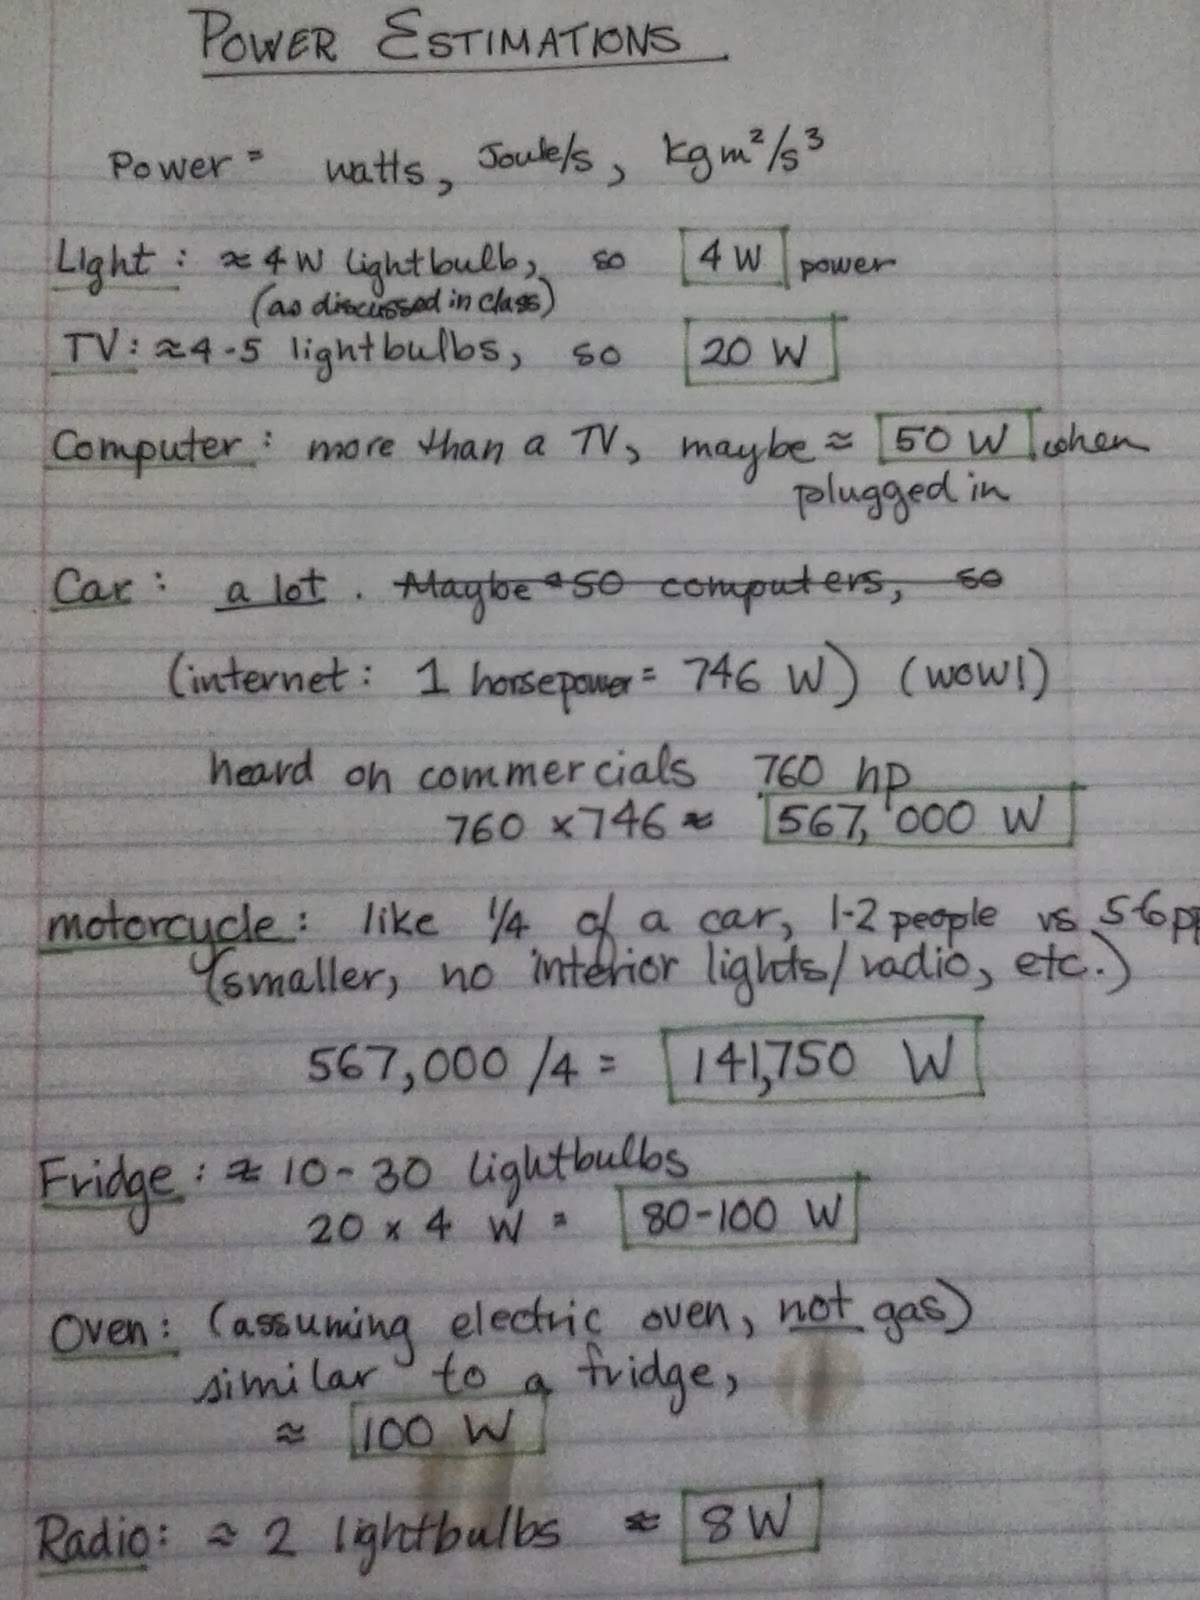 POWER ESTIMATIONS
Power = watts, Joule/s, kg m²/s³
Light: ≈ 4W lightbulb, so 4 W power
(as discussed in class)
TV: ≈ 4-5 lightbulbs, so 20 W
Computer: more than a TV, maybe ≈ 50 W when
plugged in
Car: a lot. Maybe 50 computers, so
(internet: 1 horsepower = 746 W) (wow!)
heard on commercials 760 hp
760 x 746 ≈ 567,000 W
motorcycle: like 1/4 of a car, 1-2 people vs 5-6 pp
(smaller, no interior lights/radio, etc.)
567,000 /4 = 141,750 W
Fridge: ≈ 10-30 lightbulbs
20 x 4 W = 80-100 W
Oven: (assuming electric oven, not gas)
similar to a fridge,
≈ 100 W
Radio: ≈ 2 lightbulbs ≈ 8 W